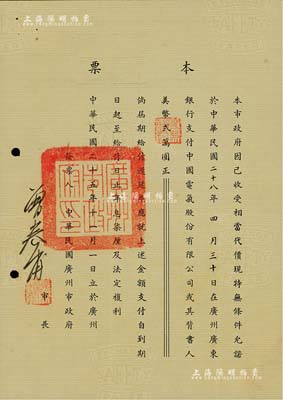 上海陽明拍賣
本票
本市政府因已收受相當代價現特無條件允諾
於中華民國二十八年 四月三十日在廣州廣東
銀行支付中國電氣股份有限公司或其背書人
美幣弍萬圓正
倘屆期給付遲延
應就上述金額支付自到期
日起至給付日止
息柒厘及法定複利
中華民國二十五年十一月一日立於廣州
發票人 中華民國廣州市政府
市長
曾養甫
上海陽明拍賣